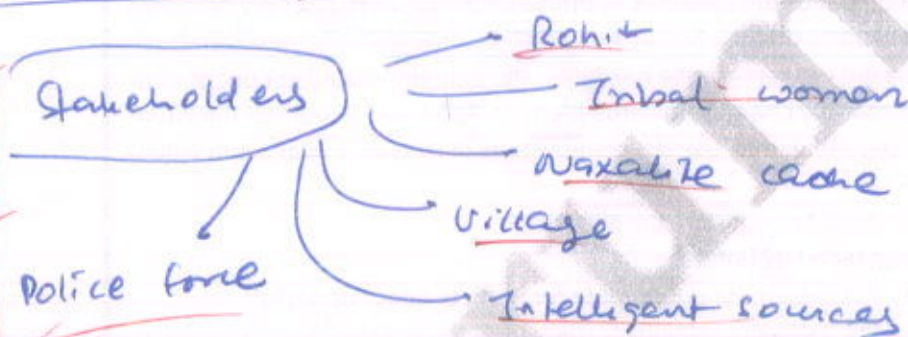 Stakeholders
Rohit
Tribal women
Naxalize cadre
Village
Intelligent sources
Police force